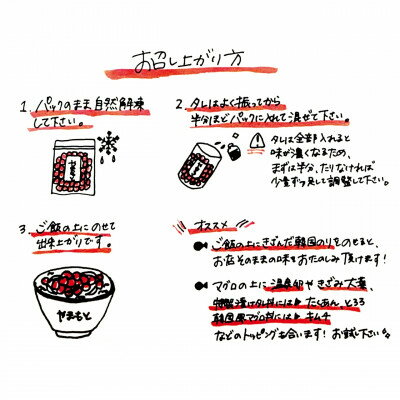 お召し上がり方
1. パックのまま自然解凍
して下さい。
2. タレはよく振ってから
半分ほどパックに入れて混ぜて下さい。
タレは全部入れると
味が濃くなるため、
まずは半分、たりなければ
少量ずつ足して調整して下さい。
3. ご飯の上にのせて
出来上がりです。
やまもと
オススメ
ご飯の上にきざんだ韓国のりをのせると、
お店そのままの味をおたのしみ頂けます!
マグロの上に温泉卵やきざみ大葉、
特製漬けダレ丼には▶たくあん、とろろ
韓国風マグロ丼には▶キムチ
などのトッピングも合います! お試し下さい。